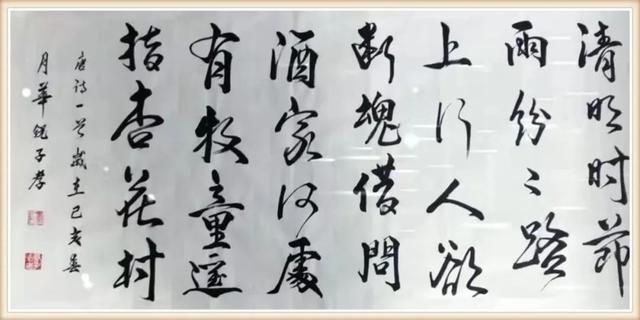 清明时節
雨纷〻路
上行人欲
断魂借問
酒家何處
有牧童遥
指杏花村
唐诗一首歲在己亥
月華子孝